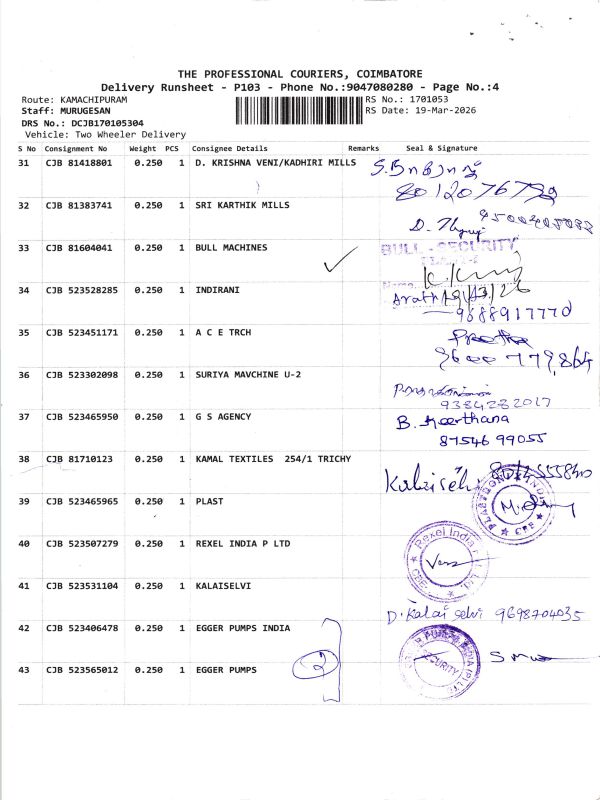 THE PROFESSIONAL COURIERS, COIMBATORE
Delivery Runsheet - P103 - Phone No.:9047080280 - Page No.:4
Route: KAMACHIPURAM
Staff: MURUGESAN
DRS No.: DCJB170105304
Vehicle: Two Wheeler Delivery
RS No.: 1701053
RS Date: 19-Mar-2026
S No Consignment No Weight PCS Consignee Details Remarks Seal & Signature
31 CJB 81418801 0.250 1 D. KRISHNA VENI/KADHIRI MILLS
32 CJB 81383741 0.250 1 SRI KARTHIK MILLS
33 CJB 81604041 0.250 1 BULL MACHINES BULL - SECURITY
34 CJB 523528285 0.250 1 INDIRANI 19/3/26
9688917770
35 CJB 523451171 0.250 1 A C E TRCH
9600 779864
36 CJB 523302098 0.250 1 SURIYA MAVCHINE U-2
9384282017
37 CJB 523465950 0.250 1 G S AGENCY B. Keerthana
87546 99055
38 CJB 81710123 0.250 1 KAMAL TEXTILES 254/1 TRICHY
39 CJB 523465965 0.250 1 PLAST
40 CJB 523507279 0.250 1 REXEL INDIA P LTD Rexel India
41 CJB 523531104 0.250 1 KALAISELVI
D. Kalai selvi 9698704035
42 CJB 523406478 0.250 1 EGGER PUMPS INDIA
43 CJB 523565012 0.250 1 EGGER PUMPS 2 SECURITY